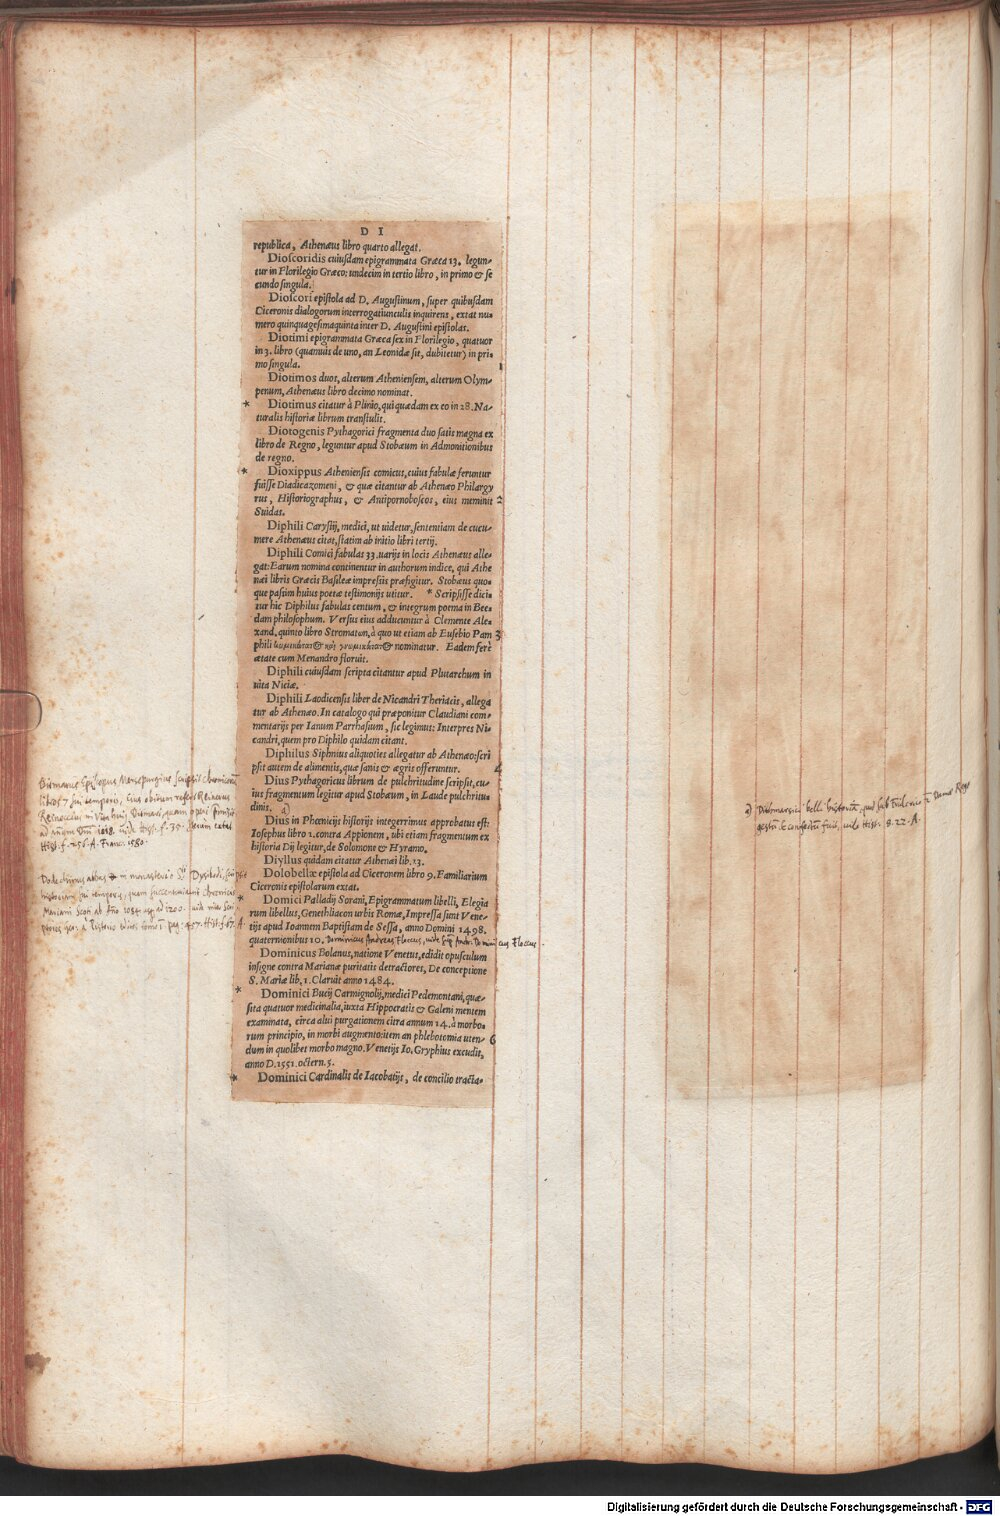 D I
republica, Athenæus libro quarto allegat.
Dioscoridis cuiusdam epigrammata Græca 13. legun-
tur in Florilegio Græco: undecim in tertio libro, in primo & se
cundo singula.
Dioscori epistola ad D. Augustinum, super quibusdam
Ciceronis dialogorum interrogatiunculis inquirens, extat nu-
mero quinquagesimaquinta inter D. Augustini epistolas.
Diotimi epigrammata Græca sex in Florilegio, quatuor
in 3. libro (quamuis de uno, an Leonidæ sit, dubitetur) in pri-
mo singula.
Diotimos duos, alterum Atheniensem, alterum Olym-
penum, Athenæus libro decimo nominat.
* Diotimus citatur à Plinio, qui quædam ex eo in 28. Na-
turalis historiæ librum transtulit.
Diotogenis Pythagorici fragmenta duo satis magna ex
libro de Regno, leguntur apud Stobæum in Admonitionibus
de regno.
* Dioxippus Atheniensis comicus, cuius fabulæ feruntur
fuisse Diadicazomeni, & quæ citantur ab Athenæo Philargy
rus, Historiographus, & Antipornoboscos, eius meminit 2
Suidas.
Diphili Carystij, medici, ut uidetur, sententiam de cucu-
mere Athenæus citat, statim ab initio libri tertij.
Diphili Comici fabulas 33. uarijs in locis Athenæus alle-
gat: Earum nomina continentur in authorum indice, qui Athe
næi libris Græcis Basileæ impressis præfigitur. Stobæus quo-
que passim huius poetæ testimonijs utitur. * Scripsisse dici-
tur hic Diphilus fabulas centum, & integrum poema in Boe-
dam philosophum. Versus eius adducuntur à Clemente Ale-
xand. quinto libro Stromatωn, à quo ut etiam ab Eusebio Pam 3
phili κωμικώτατος καὶ γνωμικώτατος nominatur. Eadem ferè
ætate cum Menandro floruit.
Diphili cuiusdam scripta citantur apud Plutarchum in
uita Niciæ.
Diphili Laodicensis liber de Nicandri Theriacis, allega
tur ab Athenæo. In catalogo qui præponitur Claudiani com-
mentarijs per Ianum Parrhasium, sic legimus: Interpres Ni-
candri, quem pro Diphilo quidam citant.
Diphilus Siphnius aliquoties allegatur ab Athenæo: scri
psit autem de alimentis, quæ sanis & ægris offeruntur. 4
Dius Pythagoricus librum de pulchritudine scripsit, cu-
ius fragmentum legitur apud Stobæum, in Laude pulchritu
dinis. a)
Dius in Phœnicijs historijs integerrimus approbatus est:
Iosephus libro 1. contra Appionem, ubi etiam fragmentum ex
historia Dij legitur, de Solomone & Hyramo.
Diyllus quidam citatur Athenæi lib. 13.
Dolobellæ epistola ad Ciceronem libro 9. Familiarium
Ciceronis epistolarum extat.
* Domici Palladij Sorani, Epigrammatum libelli, Elegia
rum libellus, Genethliacon urbis Romæ, Impressa sunt Vene-
tijs apud Ioannem Baptistam de Sessa, anno Domini 1498.
quaternionibus 10. Dominicus Andreas Floccus, uide Andr. Dominicus Floccus.
Dominicus Bolanus, natione Venetus, edidit opusculum
insigne contra Marianæ puritatis detractores, De conceptione
S. Mariæ lib. 1. Claruit anno 1484.
* Dominici Bucij Carmignolij, medici Pedemontani, quæ-
sita quatuor medicinalia, iuxta Hippocratis & Galeni mentem
examinata, circa alui purgationem citra annum 14. à morbo-
rum principio, in morbi augmento: item an phlebotomia uten- 6
dum in quolibet morbo magno. Venetijs Io. Gryphius excudit,
anno D. 1551. octern. 5.
* Dominici Cardinalis de Iacobatijs, de concilio tracta-
Ditmarus Episcopus Mersepurgius scripsit chronicorum
libros 7 sui temporis, Eius obitum refert Reinerus
Reineccius in Vita hui, Ditmari, quam operi
1018. uide Hist. f. 35.
Hist. f. 256. A. Franc. 1580.
Dodechinus abbas in monasterio S. Dysibodi,
historiam sui temporis,
Mariani Scoti ab Año 1084 usq ad 1200.
a Pistorio tomo 1. pag: 457. Hist. f. 67. A.
a) Dithmarsici belli historia, quod sub Friderico 2 Danor Rege
gestu & confectu fuit, uide Hist. 8. 22. A.
Digitalisierung gefördert durch die Deutsche Forschungsgemeinschaft - DFG